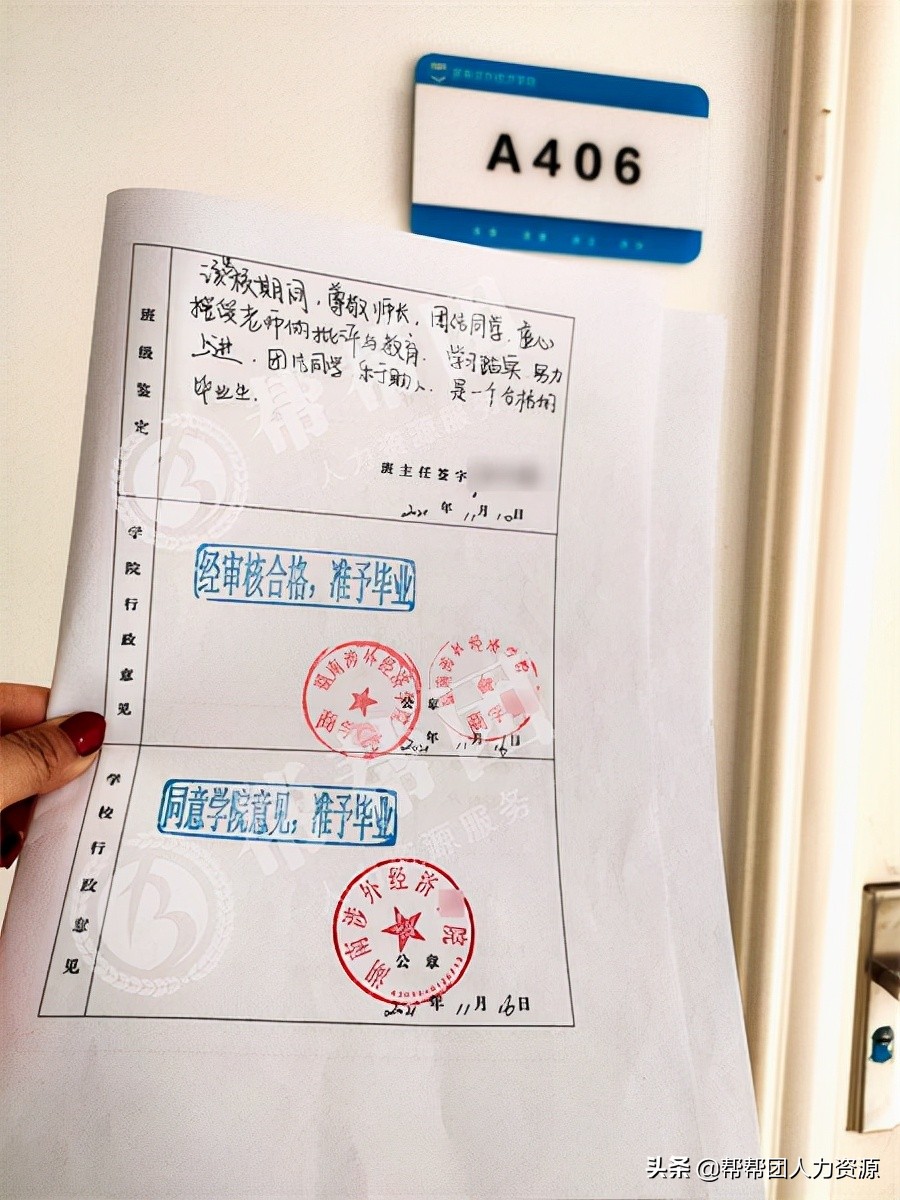 A406
班级鉴定
该生在校期间，尊敬师长，团结同学，虚心
接受老师的批评与教育，学习踏实，努力
上进，团结同学，乐于助人，是一个合格的
毕业生。
班主任签字
2021年11月10日
学院行政意见
经审核合格，准予毕业
公章
2021年11月16日
学校行政意见
同意学院意见，准予毕业
湖南涉外经济 院
公章
2021年11月16日
帮帮团
人力资源服务
头条 @帮帮团人力资源